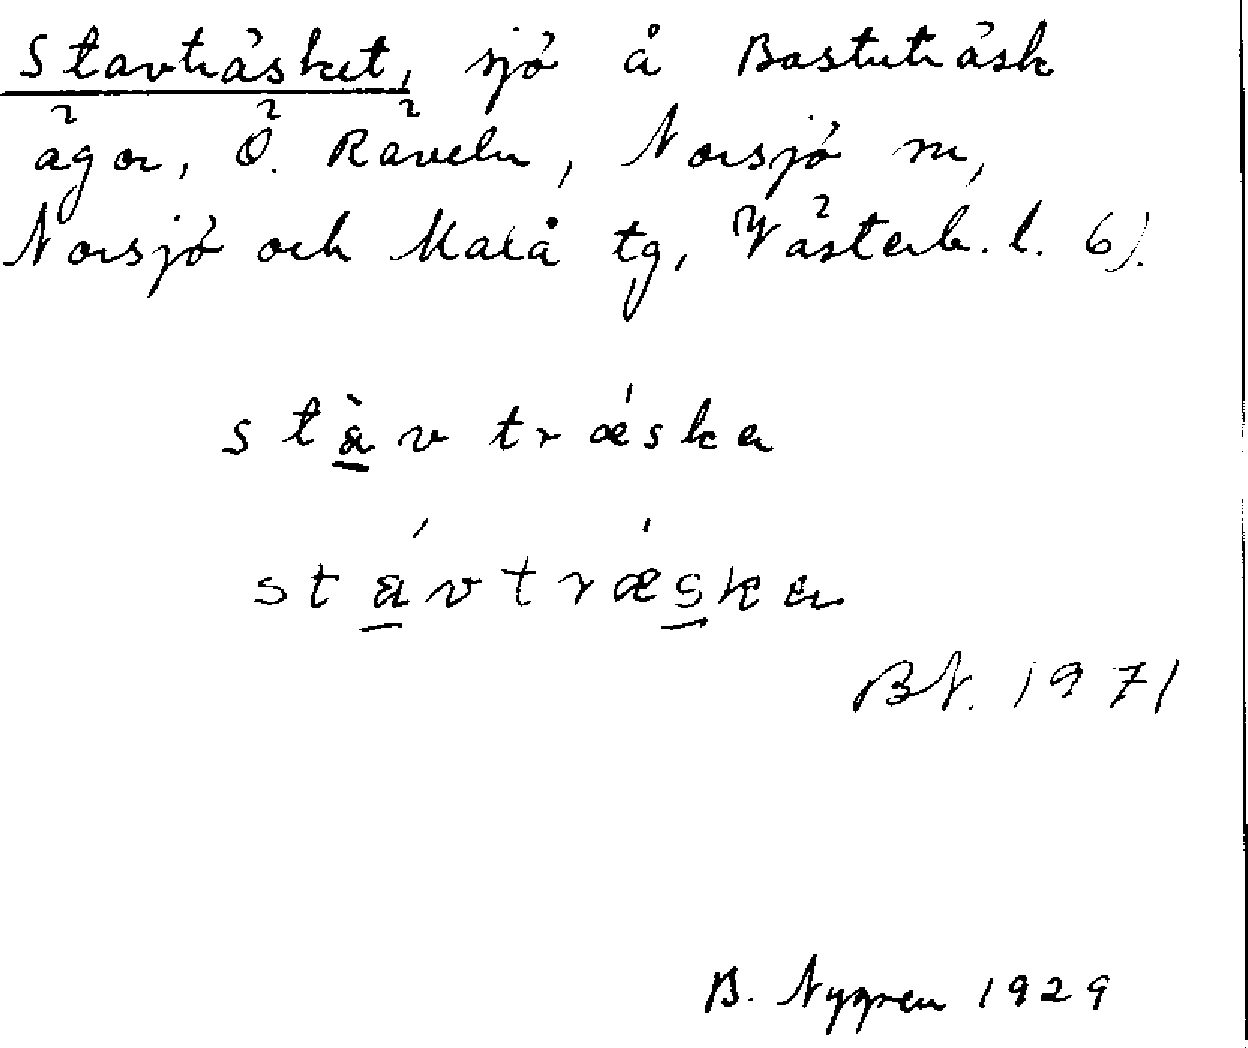 Stavträsket, sjö å Bastuträsk
ägor, Ö. Räveln, Norsjö m,
Norsjö och Malå tg, Västerb. l. 6).
stàv træ´ska
stávtræ´ska
BN. 1971
B. Nygren 1929